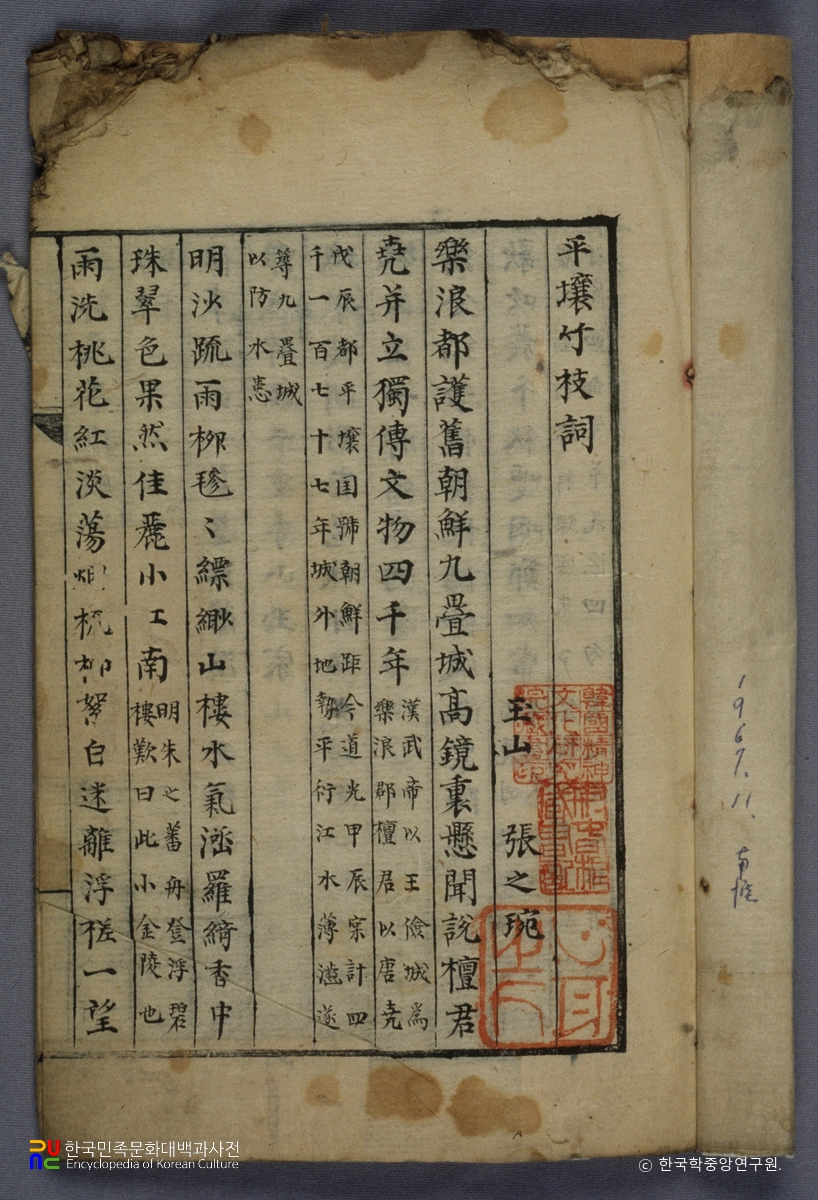 平壤竹枝詞
玉山 張之琬
樂浪都護舊朝鮮九疊城高鏡裏懸聞說檀君
堯并立獨傳文物四千年
漢武帝以王儉城爲
樂浪郡檀君以唐堯
戊辰都平壤国號朝鮮距今道光甲辰宗計四
千一百七十七年城外地勢平衍江水薄滥遂
築九疊城
以防水患
明沙踈雨柳毿〻縹緲山樓水氣涵羅綺香中
珠翠色果然佳麗小工南
明朱之蕃舟登浮碧
樓歎曰此小金陵也
雨洗桃花紅淡蕩 梳柳 白迷離浮槎一望
韓國精神
文化研究
院藏書印
心身
1967. 11.
한국민족문화대백과사전
Encyclopedia of Korean Culture
© 한국학중앙연구원.